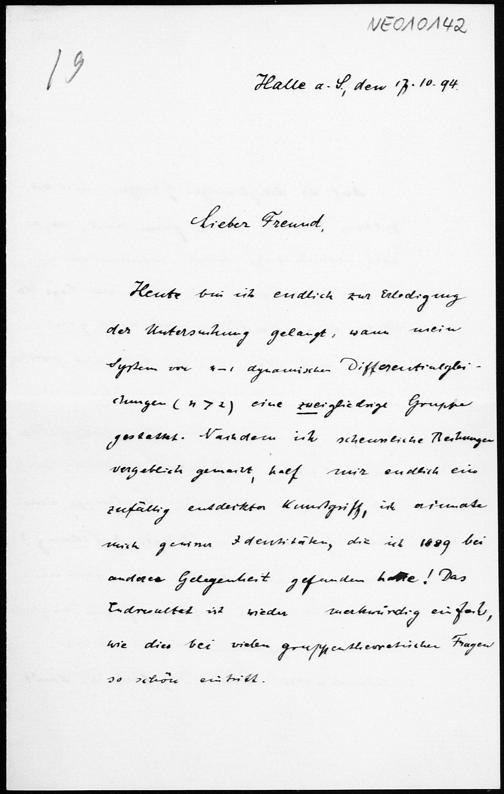 NE010142
19
Halle a. S., den 17. 10. 94.
Lieber Freund,
Heute bin ich endlich zur Erledigung
der Untersuchung gelangt, wann mein
System von n-1 dynamischen Differentialglei-
chungen (n > 2) eine zweigliedrige Gruppe
gestattet. Nachdem ich scheussliche Rechnungen
vergeblich gemacht, half mir endlich ein
zufällig entdeckter Kunstgriff, ich erinnerte
mich gewisser Identitäten, die ich 1889 bei
anderer Gelegenheit gefunden hatte! Das
Endresultat ist wieder merkwürdig einfach,
wie dies bei vielen gruppentheoretischen Fragen
so schön eintritt.